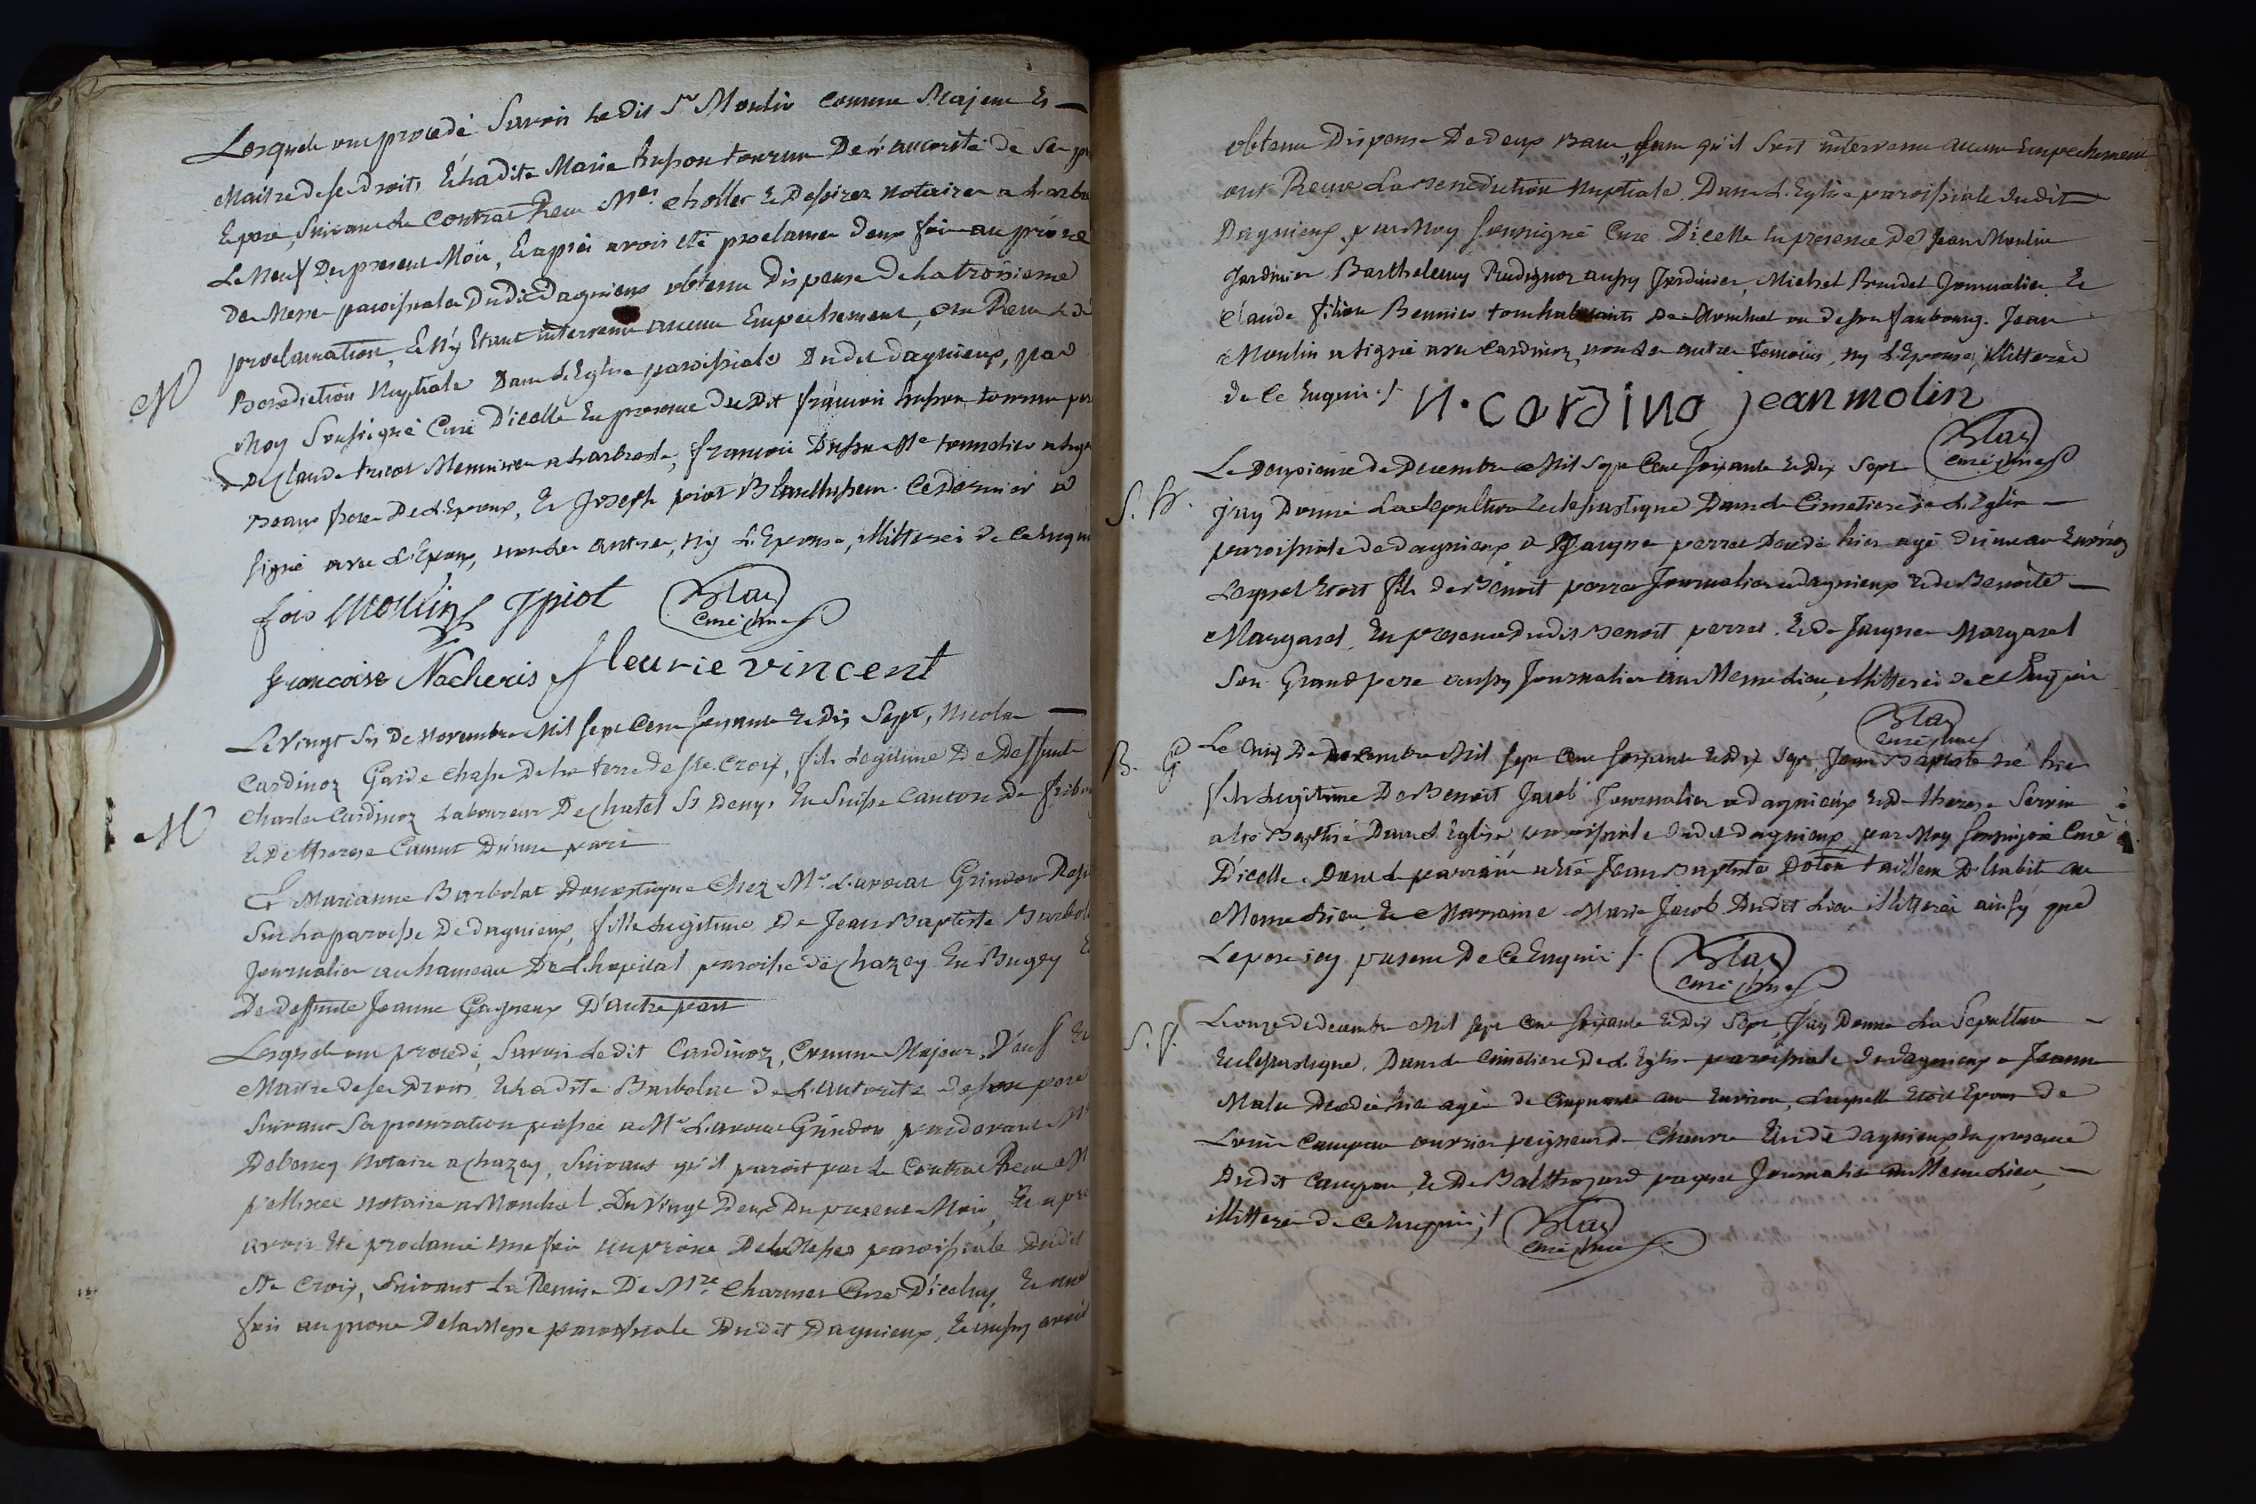 Lesquels ont procedé Savoir Ledit Sr Moulin comme Majeur Et
Maitre de ses droits, Et Ladite Marie husson tournu De L'autorité de Son
Le pere, Suivant Le Contrat Recu Mes. choller Et Despirez Notaires a Larbre
Le Neuf Du present Mois, Et aprés avoir eté proclamer deux fois au prône
De Messe paroissiale Dudit dagnieux obtenu Dispense De la troisieme
M proclamation, Et N'y Etant intervenu aucun Empechement, ont Recu La
Benediction Nuptiale Dans L'Eglise paroissiale Dudit dagnieux, par
Moy Soussigné Curé D'icelle En presence dudit françois husson tournu
De Claude Menuisier a Larbresle, françois
Beau frere De L'Epoux, Et Joseph piot Ce dernier a
Signé avec L'Epoux, non Les autres, ny L'Epouse, illitterés de ce Enquis
fois Moulin J piot Blay curé
francoise Nacheris fleurie vincent
Le Vingt Six De Novembre Mil Sept Cent Soixante Et Dix Sept, Nicolas
Cardinoz Garde chasse De la terre de Ste. Croix, fils Legitime De Deffunt
M Charles Cardinoz Laboureur De Chatel St Denys En Suisse Canton De fribourg
Et De therese Camut D'une part
Et Marianne Barbolat Domestique Chez Mr. L'avocat Grindon
Sur La paroisse De dagnieux, fille Legitime De Jean Baptiste Barbolat
Journalier au hameau De L'hopital paroisse de Chazey En Bugey Et
De deffunte Jeanne D'autre part
Lesquels ont procedé, Savoir Ledit Cardinoz, Comme Majeur,
Maitre de Ses Droits, Et Ladite Barbolat de L'autorité de son pere
Suivant Sa procuration passée a Mr L'avocat Grindon, pardevant Me
Debeney Notaire a Chazey, Suivant qu'il paroit par Le Contrat Recu Me
Notaire a Montluel Du Vingt Deux Du present Mois, Et apres
avoir Eté proclamé une fois au prône De La Messe paroissiale Dudit
Ste Croix, Suivant La Remise De Mre. Charnier Curé D'icelui, Et une
fois au prone De la Messe paroissiale Dudit Dagnieux, Et aussy avoir
obtenu Dispense De deux Bans, sans qu'il Soit intervenu aucun Empechement
ont Recue La Benediction Nuptiale Dans L'Eglise paroissiale dudit
Dagnieux par Moy Soussigné Curé D'icelle En presence De Jean Moulin
Jardinier Barthelemy aussy Jardinier, Michel Journalier Et
Claude fition tous habitants De Montluel ou de son faubourg. Jean
Moulin a Signé avec Cardinoz, non Les autres temoins, ny L'Epouse, illitterés
de Ce Enquis ./. N. cardino jean molin
Blay curé
Le Douzieme De Decembre Mil Sept Cent Soixante Et Dix Sept
S. B. J'ay Donné La Sepulture Eclesiastique Dans Le Cimetiere De L'Eglise
paroissiale De dagnieux a Jaques perret Decedé hier agé d'un an Environ
Lequel Etoit fils De Benoit perret Journalier a dagnieux Et de Benoite
Margarel, En presence Dudit Benoit perret Et De Jaques Margarel
Son Grand pere aussy Journalier au Meme Lieu, illitterés de ce Enquis
Blay curé
B. G Le Cinq De Decembre Mil Sept Cent Soixante Et Dix Sept Jean Baptiste né hier
fils Legitime De Benoit Jacob Journalier a dagnieux Et De therese Servin
a eté Baptisé Dans L'Eglise paroissiale Dudit dagnieux par Moy Soussigné Curé
D'icelle. Dont Le parrain a eté Jean Baptiste Doton tailleur D'habit au
Meme Lieu, Et Marraine Marie Jacob Dudit Lieu illitterés ainsy que
Le pere icy present De Ce Enquis ./. Blay curé
S. f. Le onze De decembre Mil Sept Cent Soixante Et Dix Sept J'ay Donné La Sepulture
Eclesiastique Dans Le Cimetiere De L'Eglise paroissiale De dagnieux a Jeanne
Malu Decedée hier agée de Cinquante ans Environ, Laquelle Etoit Epouse De
Louis Campan ouvrier peigneur De Chanvre Audit dagnieux En presence
Dudit Campan, Et De Balthazard Journalier au Meme Lieu,
illitterés De Ce Enquis ./. Blay curé